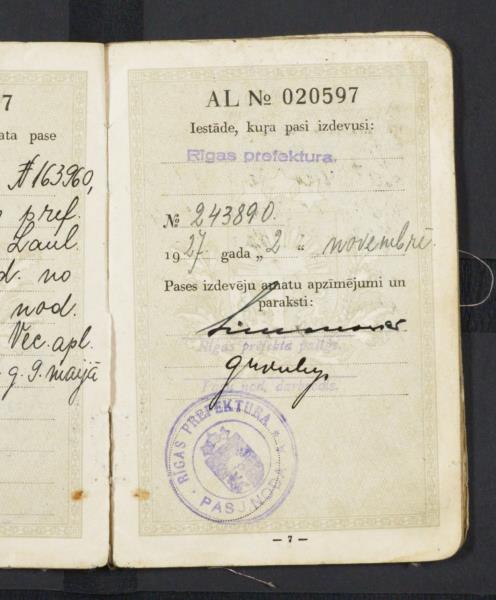 7
ata pase
№163960,
pref.
Laul.
d. no
nod.
Vec. apl.
g. 9. maijā
AL № 020597
Iestāde, kuŗa pasi izdevusi:
Rīgas prefektura.
№ 243890.
1927 gada „2“ novembrē
Pases izdevēju amatu apzīmējumi un
paraksti:
Rīgas prefekta palīgs.
Pasu nod. darbvedis.
RĪGAS PREFEKTURA
PASU NODAĻA
— 7 —